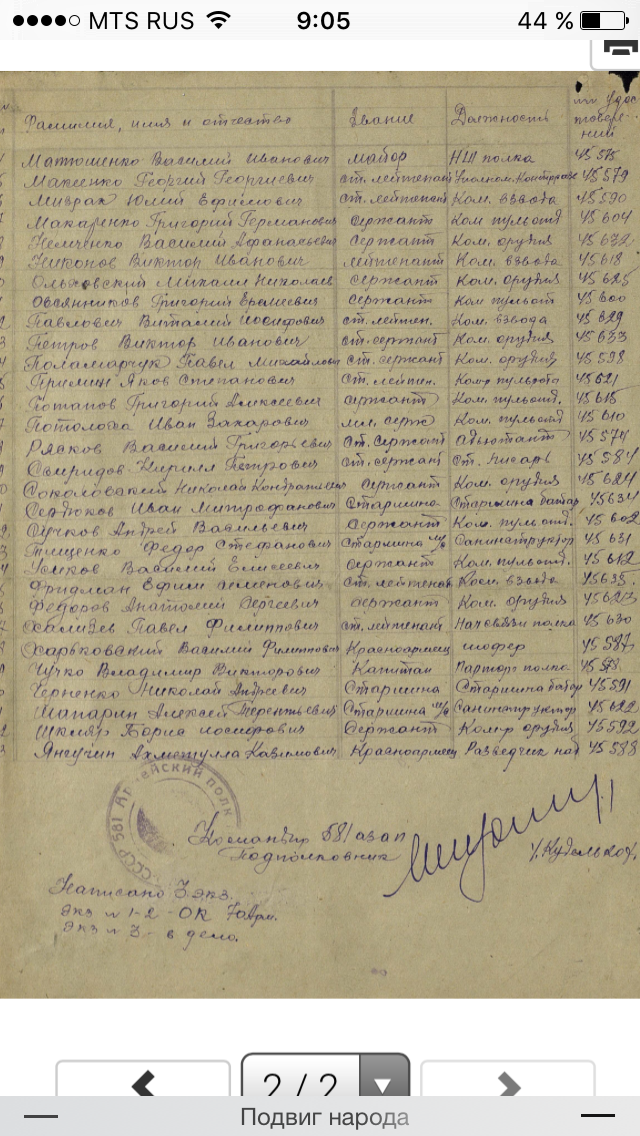 MTS RUS 9:05 44 %
Фамилия, имя и отчество Звание Должность
Матюшенко Василий Иванович майор НШ полка 45575
Макеенко Георгий Георгиевич ст. лейтенант 45579
Мизрах Юлий Ефимович ст. лейтенант Ком. взвода 45590
Макаренко Григорий Германович сержант Ком пульотд 45604
Немченко Василий Афанасьевич сержант Ком. орудия 45632
Никонов Виктор Иванович лейтенант Ком. взвода 45618
Ольховский Михаил Николаев сержант Ком. орудия 45625
Овсянников Григорий Ерамеевич сержант Ком пульот 45600
Павлович Виталий Иосифович ст. лейтен. Ком. взвода 45629
Петров Виктор Иванович ст. сержант Ком. орудия 45633
Поламарчук Павел Михайлович ст. сержант Ком. орудия 45598
Яков Степанович ст. лейтен. Комр пульрота 45621
Потапов Григорий Алексеевич сержант Ком. пульотд. 45615
Потолока Иван Захарович мл. серж Ком. пульотд 45610
Рясков Василий Григорьевич ст. сержант адъютант 45574
Свиридов Кирилл Петрович ст. сержант ст. писарь 45584
Соколовский Николай сержант Ком. орудия 45624
Сердюков Иван Митрофанович старшина Старшина батар 45634
Сучков Андрей Васильевич сержант Ком. пульотд. 45602
Тищенко Федор Стефанович старшина м/с Санинструктор 45631
Усиков Василий Елисеевич сержант Ком. пульотд. 45612
Фридман Ефим Семенович ст. лейтенант Ком. взвода 45635.
Федоров Анатолий Сергеевич сержант Ком. орудия 45623
Халишев Павел Филиппович ст. лейтенант Нач связи полка 45630
Харьковский Василий Филиппович Красноармеец шофер 45587
Чучко Владимир Викторович Капитан Парторг полка
Черненко Николай Андреевич Старшина Старшина батар 45591
Шапарин Алексей Терентьевич Старшина м/с Санинструктор 45622
Шкляр Борис Иосифович сержант Комр орудия 45592
Янгучин Ахметулла Казимович Красноармеец Разведчик 45588
СССР 581 полк
Командир 581 азап
Подполковник
Написано 3 экз.
экз № 1-2 - ОК
экз № 3 - в дело.
2 / 2
Подвиг народа